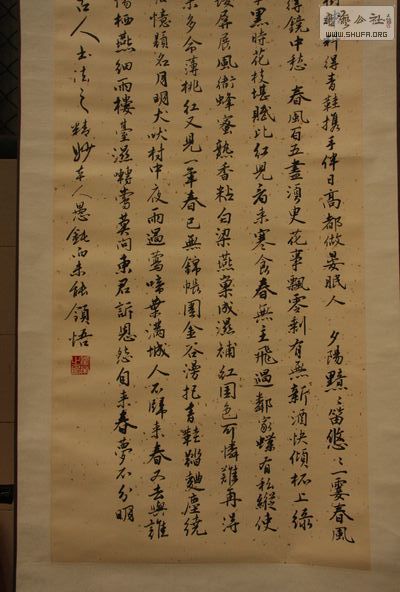 得青鞋携手伴日高都做晏眠人 夕陽黯々笛悠々一霎春風
得鏡中愁 春風百五盡須臾花事飄零剩有無新酒快傾杯上綠
黑時花枝堪賦比紅兒看來寒食春無主飛過鄰家蝶有私縱使
屏展風銜蜂蜜熟香粘白粱燕巢成滋補紅國色可憐難再得
多命薄桃紅又見一年春已無錦帳圍金谷漫把青鞋踏麴塵繞
憶題名月明犬吠村中夜雨過鶯啼葉滿城人不歸來春又去與誰
陽栖燕細雨樓臺滋囀鶯莫問東君訴恩怨自来春夢不分明
古人书法之精妙本人愚鈍而未能領悟
WWW.SHUFA.ORG